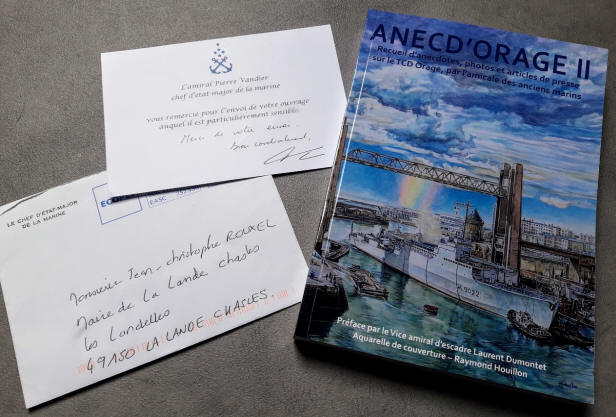 L'amiral Pierre Vandier
chef d'état-major de la marine
vous remercie pour l'envoi de votre ouvrage
auquel il est particulièrement sensible.
Merci de votre envoi
Bien cordialement,
LE CHEF D'ÉTAT-MAJOR
DE LA MARINE
Monsieur Jean-Christophe ROUXEL
Maire de La Lande Chasles
Les Landelles
49150 LA LANDE CHASLES
ANECD'ORAGE II
Recueil d'anecdotes, photos et articles de presse
sur le TCD Orage, par l'amicale des anciens marins
Préface par le Vice amiral d'escadre Laurent Dumontet
Aquarelle de couverture – Raymond Houillon